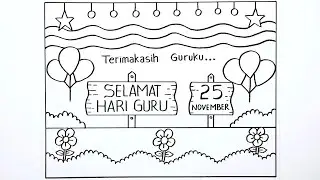 Terimakasih Guruku...
SELAMAT
HARI GURU
25
NOVEMBER